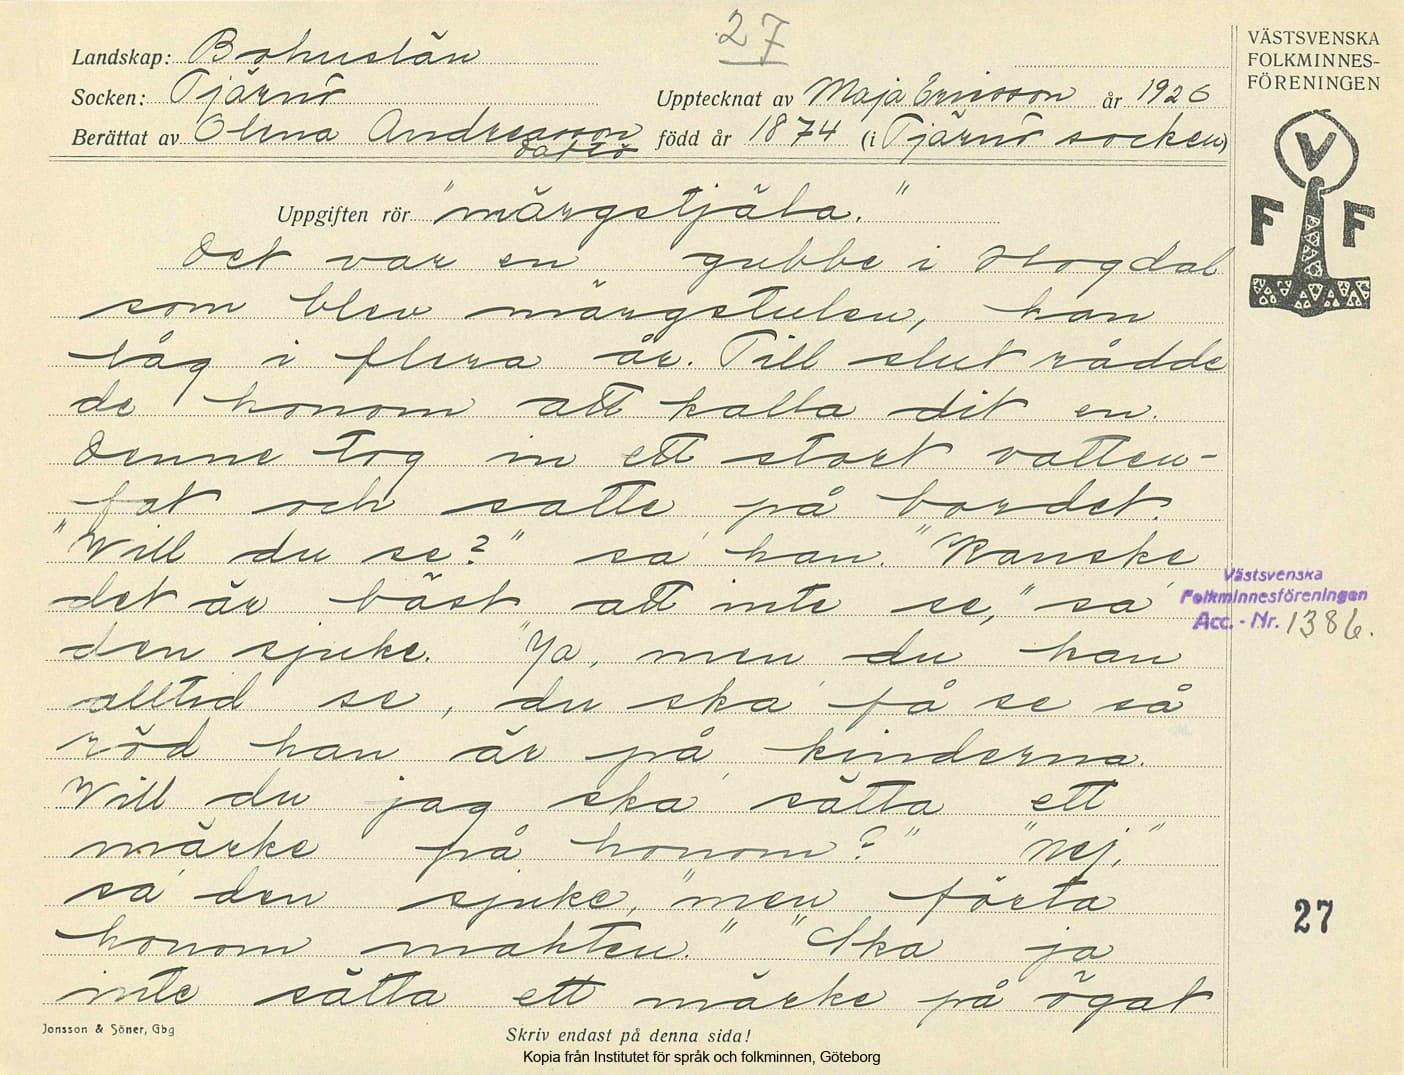 27
Landskap: Bohuslän
Socken: Tjärnö
Upptecknat av Maja Ericsson år 1926
Berättat av Olena Andreasson
Saltö
född år 1874 (i Tjärnö socken)
VÄSTSVENSKA
FOLKMINNES-
FÖRENINGEN
V
F F
Uppgiften rör "märgstjäla."
Det var en gubbe i Hogdal
som blev märgstulen, han
låg i flera år. Till slut rådde
de honom att kalla dit en.
Denne tog in ett stort vatten-
fat och satte på bordet.
"Will du se?" sa' han. "Kanske
det är bäst att inte se," sa'
den sjuke. "Ja, men du kan
alltid se, du ska' få se så
röd han är på kinderna.
Will du jag ska' sätta ett
märke på honom?" "Nej,"
sa' den sjuke, "men förta
honom makten." "Ska ja
inte sätta ett märke på ögat
Västsvenska
Folkminnesföreningen
Acc. - Nr. 1386.
27
Jonsson & Söner, Gbg
Skriv endast på denna sida!
Kopia från Institutet för språk och folkminnen, Göteborg